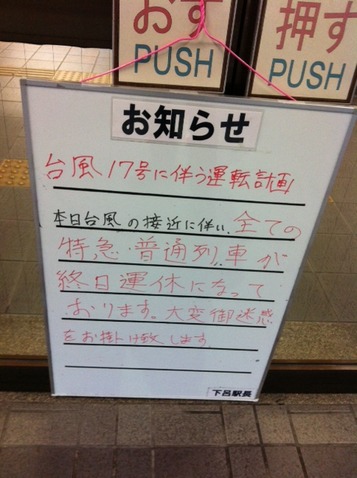 おす
PUSH
押す
PUSH
お知らせ
台風17号に伴う運転計画
本日台風の接近に伴い、全ての
特急・普通列車が
終日運休になって
おります。大変御迷惑
をお掛け致します。
下呂駅長